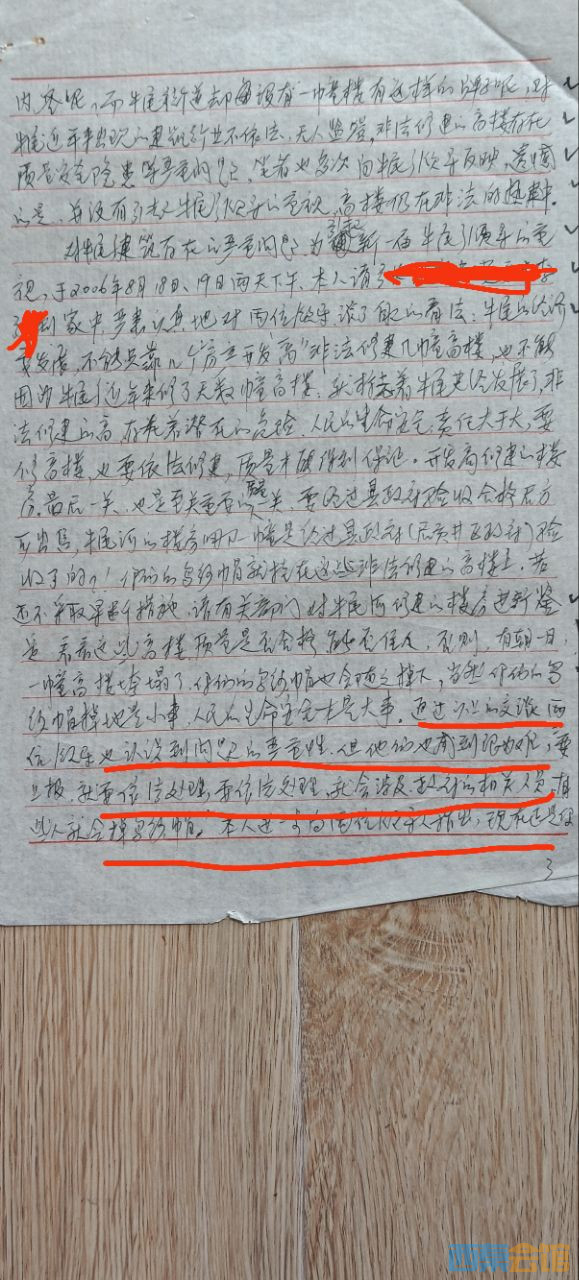 内容呢，而牛尾街道却每没有一幢高楼有这样的牌子呢，对
牛尾近年来出现的建筑行业不依法、无人监管，非法修建的高楼存在
质量安全隐患等严重的问题，笔者也多次向牛尾领导反映，遗憾
的是，并没有引起牛尾领导的重视，高楼仍在非法的
对牛尾建筑存在的严重问题，为引起新一届牛尾领导的重
视，于2006年8月18日、19日两天下午，本人请
到家中，严肃认真地对两位领导谈了自己的看法：牛尾的经济
要发展，不能只靠几个房产开发商非法修建几幢高楼，也不能
因为牛尾近年来修了无数幢高楼，就标志着牛尾经济发展了，非
法修建的高，存在着潜在的危险，人民的生命安全，责任大于天，要
修高楼，也要依法修建，质量才能得到保证。开发商修建的楼
房，最后一关，也是至关重要的一关，要经过县政府验收合格后方
可出售，牛尾河的楼房哪几幢是经过县政府（后质井区政府）验
收了的？！你们的乌纱帽就挂在这些非法修建的高楼上，若
还不采取果断措施，请有关部门对牛尾河修建的楼房进行鉴
定，看看这些高楼，质量是否合格，能否住人，否则，有朝一日，
一幢高楼垮塌了，你们的乌纱帽也会随之掉下，当然你们的乌
纱帽掉地是小事，人民的生命安全才是大事。通过认真的交谈，两
位领导也认识到问题的严重性，但他们也感到很为难；要
上报，就要依法处理，要依法处理，就会涉及政府的相关人员，有
些人就会掉乌纱帽。本人进一步向两位领导人指出，现在还是
3
西祠会馆